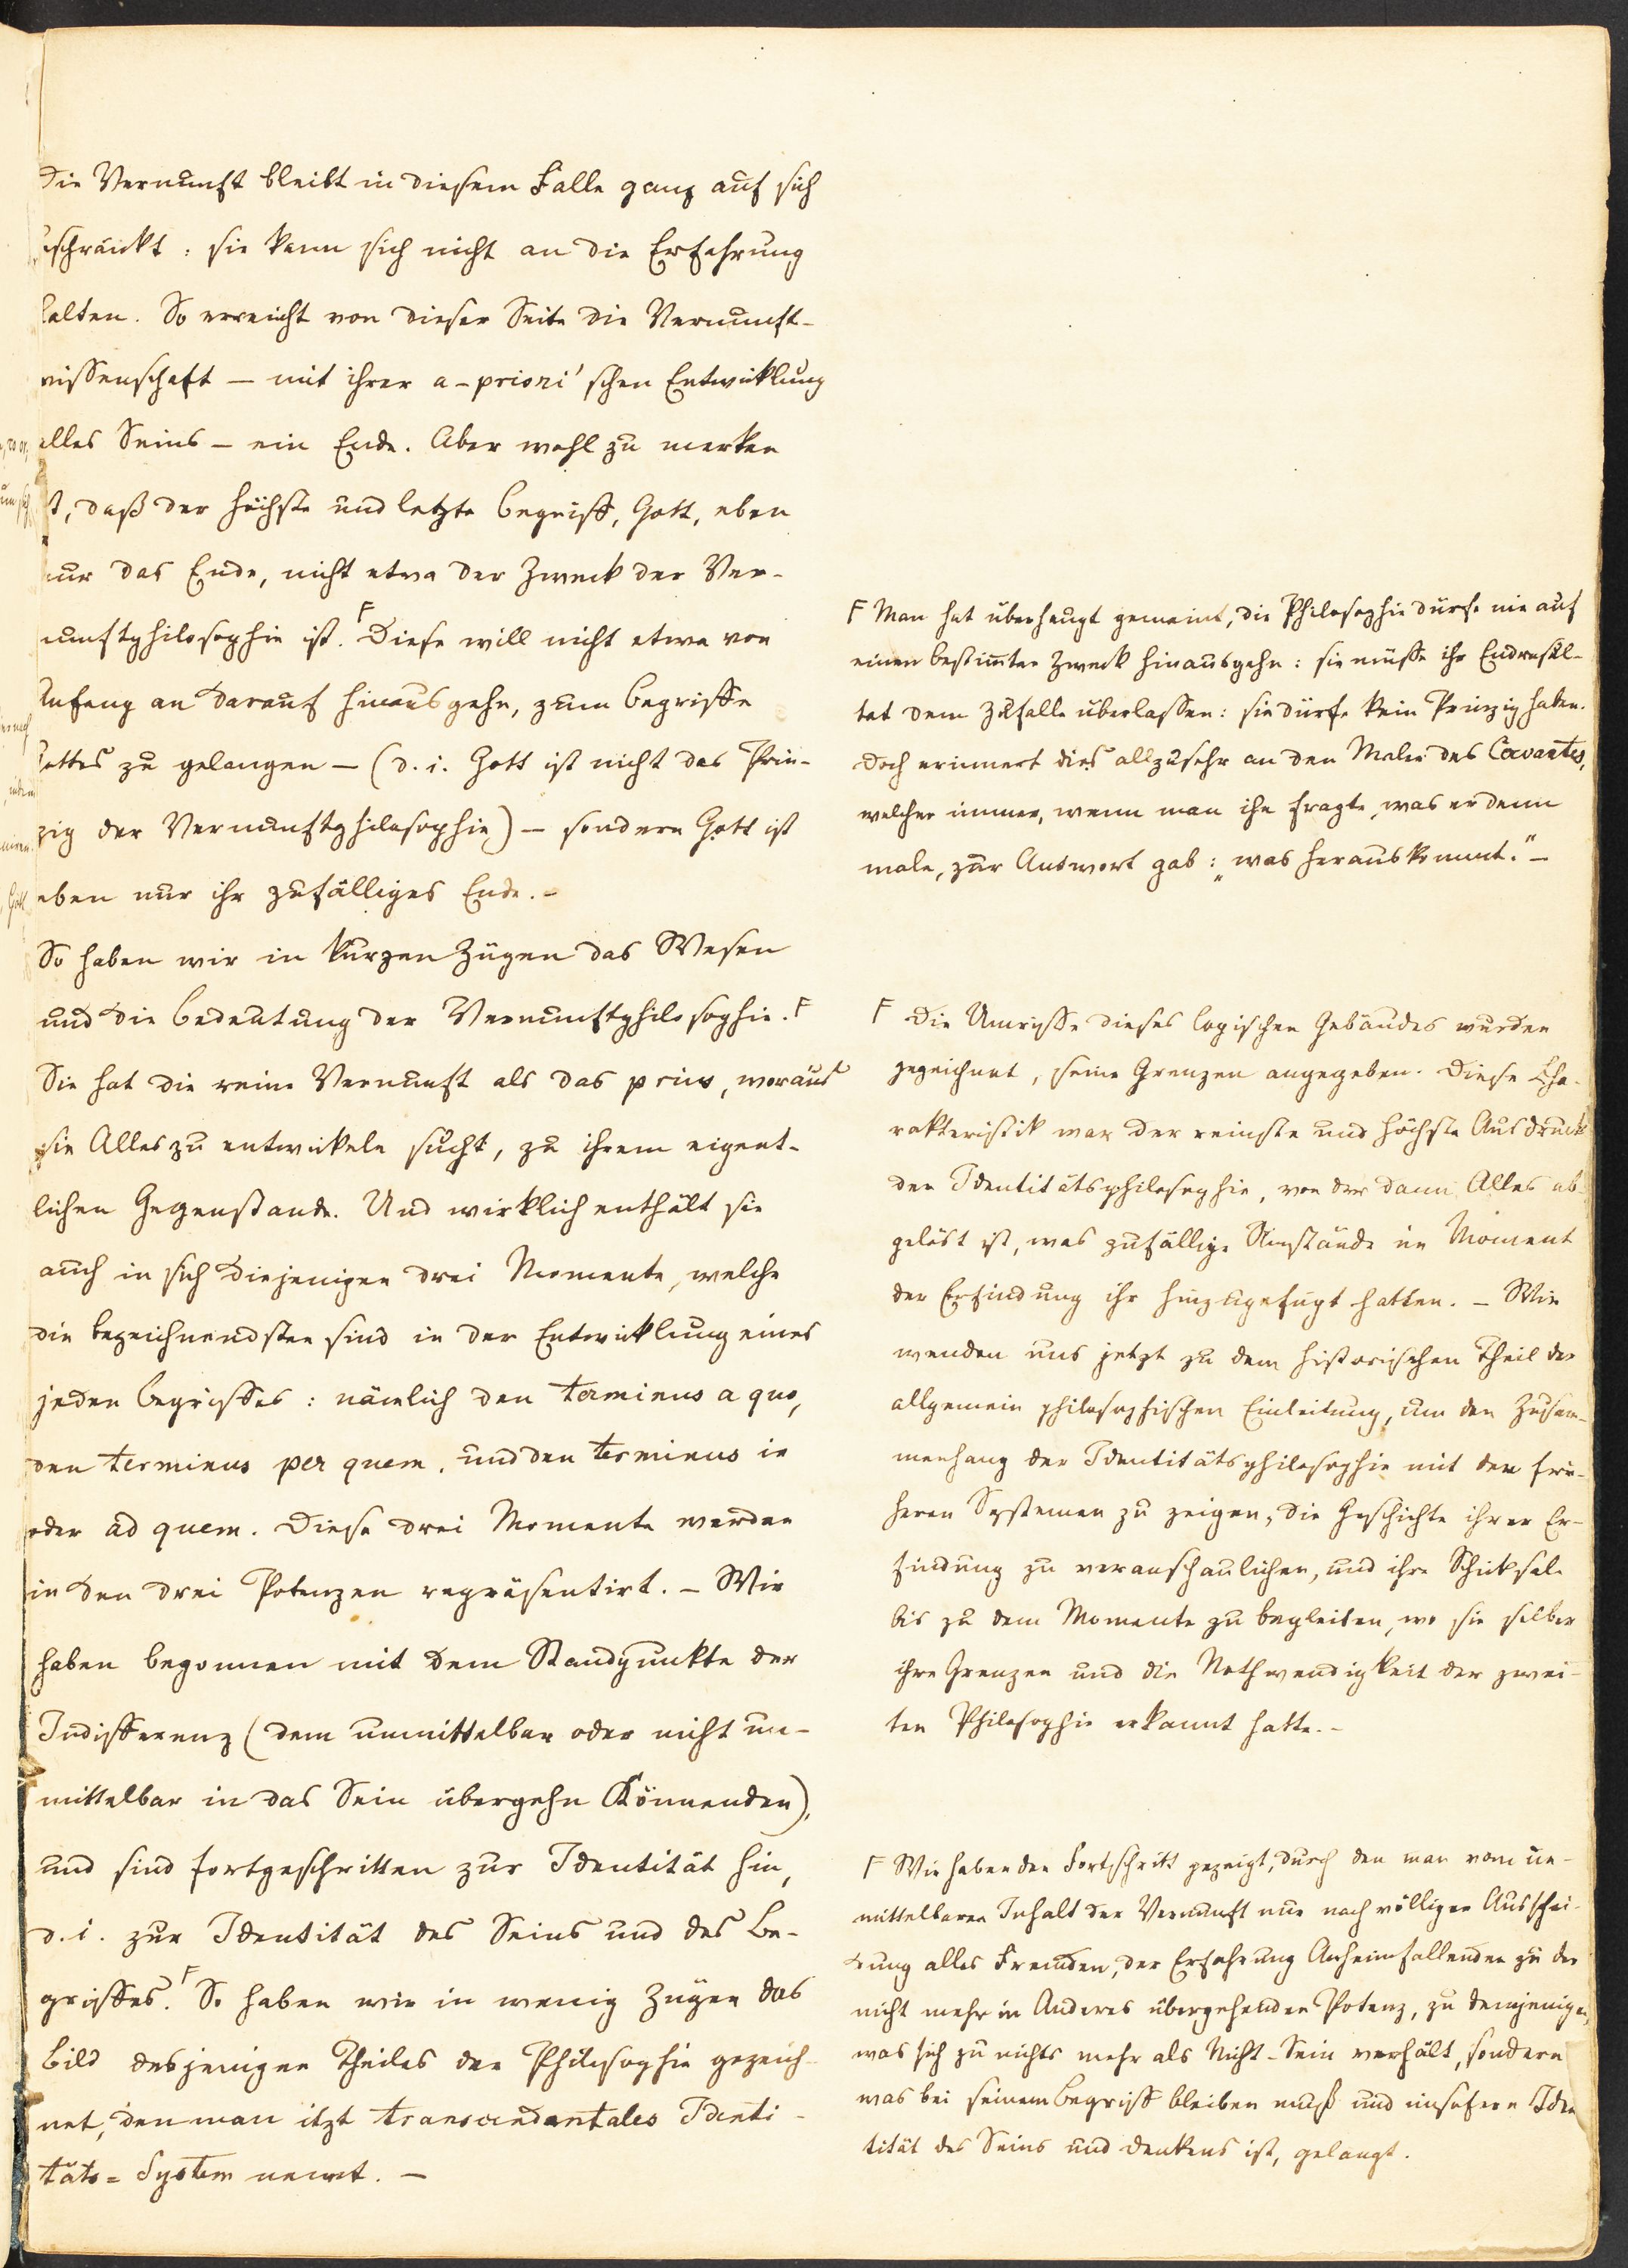 Die Vernunft bleibt in diesem Falle ganz auf sich
schränkt: sie kann sich nicht an die Erfahrung
halten. So erreicht von dieser Seite die Vernunft-
wissenschaft – mit ihrer a-priori'schen Entwicklung
alles Seins – ein Ende. Aber wohl zu merken
ist, daß der höchste und letzte Begriff, Gott, eben
nur das Ende, nicht etwa der Zweck der Ver-
nunftphilosophie ist. F Diese will nicht etwa von
Anfang an darauf hinausgehn, zum Begriffe
Gottes zu gelangen – (d. i. Gott ist nicht das Prin-
zip der Vernunftphilosophie) – sondern Gott ist
eben nur ihr zufälliges Ende. –
So haben wir in kurzen Zügen das Wesen
und die Bedeutung der Vernunftphilosophie. F
Sie hat die reine Vernunft als das prius, woraus
sie Alles zu entwickeln sucht, zu ihrem eigent-
lichen Gegenstande. Und wirklich enthält sie
auch in sich diejenigen drei Momente, welche
die bezeichnendsten sind in der Entwicklung eines
jeden Begriffes: nämlich den terminus a quo,
den terminus per quem, und den terminus in
oder ad quem. Diese drei Momente werden
in den drei Potenzen repräsentirt. – Wir
haben begonnen mit dem Standpunkte der
Indifferenz (dem unmittelbar oder nicht un-
mittelbar in das Sein übergehn Könnenden),
und sind fortgeschritten zur Identität hin,
d. i. zur Identität des Seins und des Be-
griffes. F So haben wir in wenig Zügen das
Bild desjenigen Theiles der Philosophie gezeich-
net, den man itzt transcendentales Identi-
täts=System nennt. –
F Man hat überhaupt gemeint, die Philosophie dürfe nie auf
einen bestimten Zweck hinausgehn: sie müsse ihr Endresul-
tat dem Zufalle überlassen: sie dürfe kein Prinzip haben.
Doch erinnert dies allzusehr an den Maler des Cervantes,
welcher immer, wenn man ihn fragte, was er denn
male, zur Antwort gab: „was herauskommt." –
F Die Umrisse dieses logischen Gebäudes wurden
gezeichnet, seine Grenzen angegeben. Diese Cha-
rakteristik war der reinste und höchste Ausdruck
der Identitätsphilosophie, von der dann Alles ab-
gelöst ist, was zufällige Umstände im Moment
der Erfindung ihr hinzugefügt hatten. – Wir
wenden uns jetzt zu dem historischen Theil der
allgemein philosophischen Einleitung, um den Zusam-
menhang der Identitätsphilosophie mit den frü-
heren Systemen zu zeigen, die Geschichte ihrer Er-
findung zu veranschaulichen, und ihre Schicksale
bis zu dem Momente zu begleiten, wo sie selber
ihre Grenzen und die Nothwendigkeit der zwei-
ten Philosophie erkannt hatte. –
F Wir haben den Fortschritt gezeigt, durch den man vom un-
mittelbaren Inhalt der Vernunft nur nach völliger Ausschei-
dung alles Fremden, der Erfahrung Anheimfallenden zu der
nicht mehr in Anderes übergehenden Potenz, zu demjenigen,
was sich zu nichts mehr als Nicht-Sein verhält, sondern
was bei seinem Begriff bleiben muß und insofern Iden
tität des Seins und Denkens ist, gelangt.